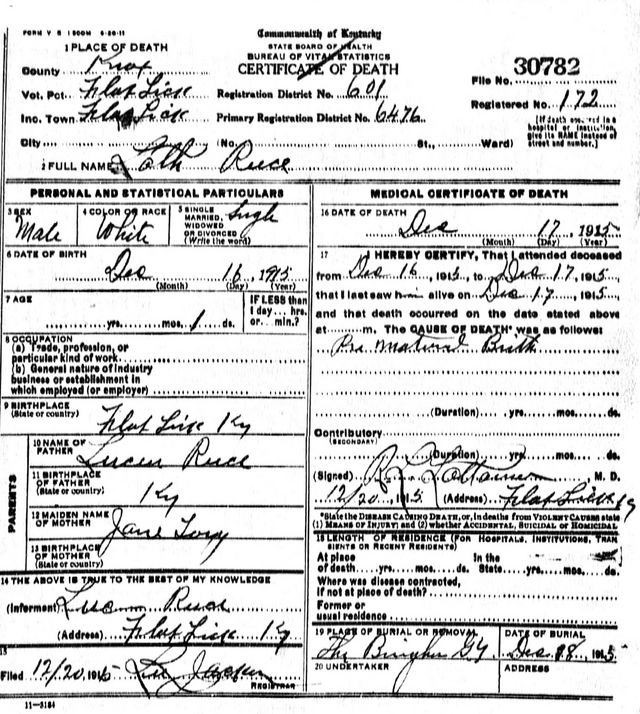 FORM V S 1 500M 6-20-11
Commonwealth of Kentucky
STATE BOARD OF HEALTH
BUREAU OF VITAL STATISTICS
CERTIFICATE OF DEATH
1 PLACE OF DEATH
County Knox
Vot. Pct. Flat Lick
Inc. Town Flat Lick
City
Registration District No. 601
Primary Registration District No. 6476
(No. St., Ward)
File No. 30782
Registered No. 172
[If death occurred in a
hospital or institution,
give its NAME instead of
street and number.]
2 FULL NAME
PERSONAL AND STATISTICAL PARTICULARS
3 SEX
Male
4 COLOR OR RACE
White
5 SINGLE
MARRIED,
WIDOWED
OR DIVORCED
(Write the word)
Single
6 DATE OF BIRTH
Dec 16, 1915
(Month) (Day) (Year)
7 AGE
yrs. mos. 1 ds.
IF LESS than
1 day... hrs.
or... min.?
8 OCCUPATION
(a) Trade, profession, or
particular kind of work
(b) General nature of industry
business or establishment in
which employed (or employer)
9 BIRTHPLACE
(State or country)
Flat Lick Ky
PARENTS
10 NAME OF
FATHER
11 BIRTHPLACE
OF FATHER
(State or country)
Ky
12 MAIDEN NAME
OF MOTHER
Jane
13 BIRTHPLACE
OF MOTHER
(State or country)
14 THE ABOVE IS TRUE TO THE BEST OF MY KNOWLEDGE
(Informant)
(Address) Flat Lick Ky
15
Filed 12/20 1915
REGISTRAR
11-3184
MEDICAL CERTIFICATE OF DEATH
16 DATE OF DEATH
Dec 17, 1915
(Month) (Day) (Year)
17 I HEREBY CERTIFY, That I attended deceased
from Dec 16, 1915, to Dec 17, 1915
that I last saw him alive on Dec 17, 1915
and that death occurred on the date stated above
at m. The CAUSE OF DEATH* was as follows:
Pre Matural Birth
(Duration) yrs. mos. ds.
Contributory
(SECONDARY)
(Duration) yrs. mos. ds.
(Signed) M. D.
12/20 1915 (Address) Flat Lick Ky
*State the DISEASE CAUSING DEATH, or, in deaths from VIOLENT CAUSES state
(1) MEANS OF INJURY; and (2) whether ACCIDENTAL, SUICIDAL or HOMICIDAL
18 LENGTH OF RESIDENCE (FOR HOSPITALS, INSTITUTIONS, TRAN
SIENTS OR RECENT RESIDENTS)
At place
of death yrs. mos. ds.
In the
State yrs. mos. ds.
Where was disease contracted,
if not at place of death?
Former or
usual residence
19 PLACE OF BURIAL OR REMOVAL
DATE OF BURIAL
Dec. 18, 1915
20 UNDERTAKER
ADDRESS